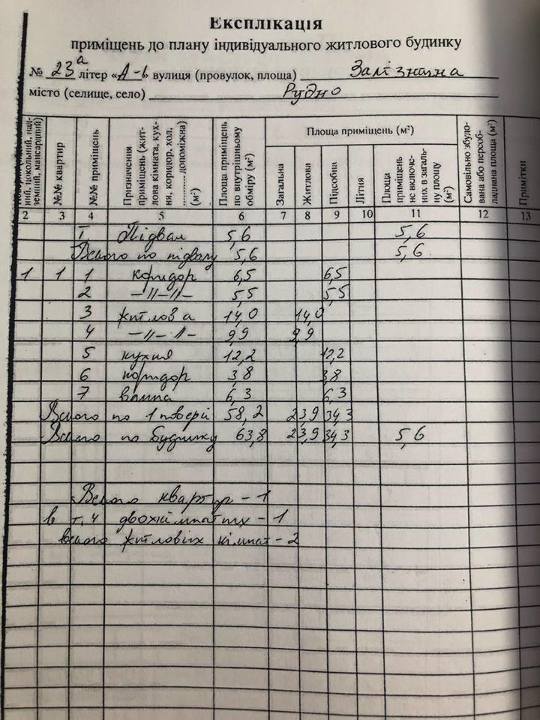 Експлікація
приміщень до плану індивідуального житлового будинку
№ 23а літер «А-1 вулиця (провулок, площа) Залізнична
місто (селище, село) Рудно
ний, цокольний, над-
земний, мансардний)
№№ квартир
№№ приміщень
Призначення
приміщень (жит-
лова кімната, кух-
ня, коридор, хол,
допоміжна)
(м²)
Площа приміщень
по внутрішньому
обміру (м²)
Площа приміщень (м²)
Загальна
Житлова
Підсобна
Літня
Площа
приміщень
не включе-
них в загаль-
ну площу
(м²)
Самовільно збудо-
вана або переоб-
ладнана площа (м²)
Примітки
2 3 4 5 6 7 8 9 10 11 12 13
I Підвал 5,6 5,6
Всього по підвалу 5,6 5,6
1 1 1 коридор 6,5 6,5
2 —//—//— 5,5 5,5
3 житлова 14,0 14,0
4 —//— //— 9,9 9,9
5 кухня 12,2 12,2
6 коридор 3,8 3,8
7 ванна 6,3 6,3
Всього по 1 поверсі 58,2 23,9 34,3
Всього по будинку 63,8 23,9 34,3 5,6
Всього квартир - 1
в т.ч двохкімнатних - 1
всього житлових кімнат - 2